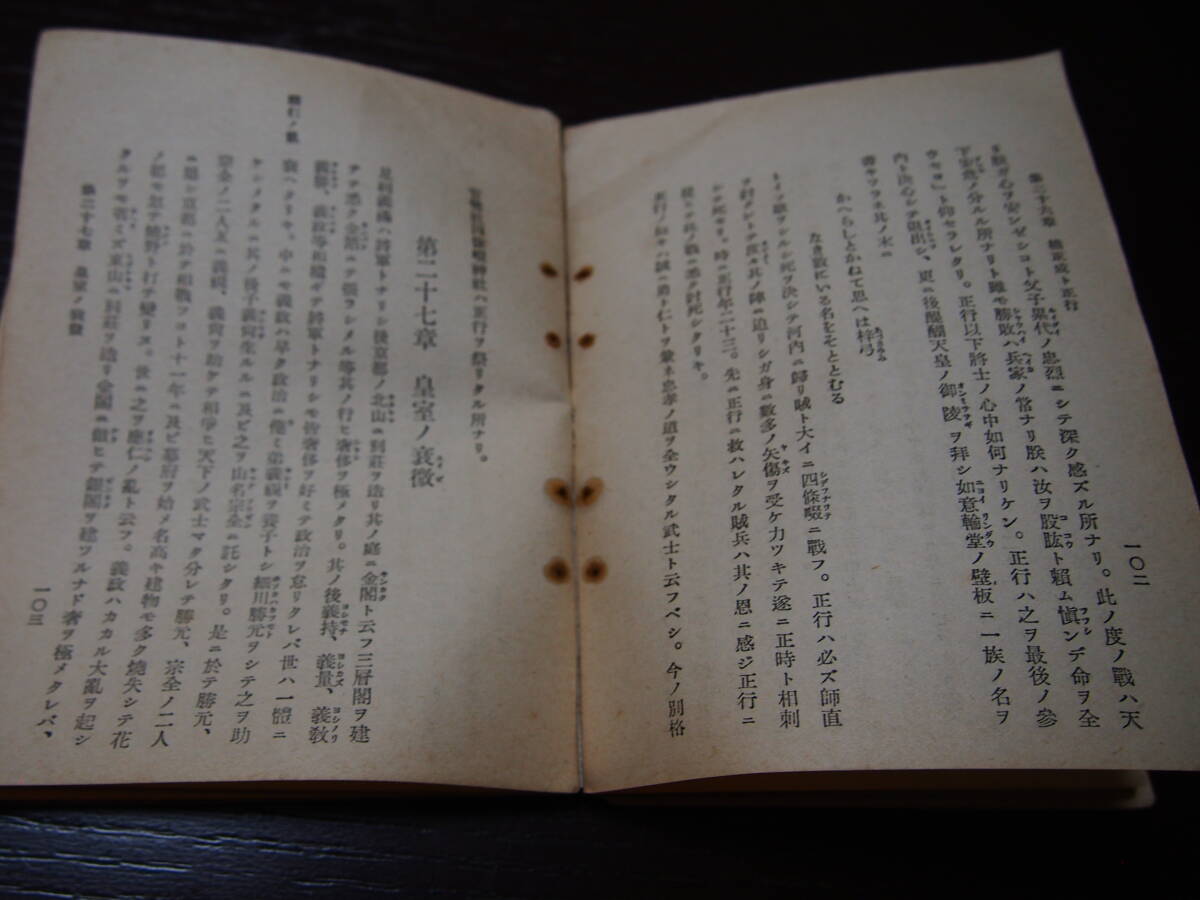 第二十六章 楠正成ト正行
一〇二
ノ忠烈ニシテ深ク感ズル所ナリ。此ノ度ノ戰ハ天
下安危ノ分ルル所ナリト雖モ勝敗ハ兵家ノ常ナリ朕ハ汝ヲ股肱ト賴ム愼ンデ命ヲ全
ウセヨ」ト仰セラレタリ。正行以下將士ノ心中如何ナリケン。正行ハ之ヲ最後ノ參
內ト決心シテ退出シ、更ニ後醍醐天皇ノ御陵ヲ拜シ如意輪堂ノ壁板ニ一族ノ名ヲ
書キツラネ其ノ末ニ
かへらじとかねて思へは梓弓
なき數にいる名をそととむる
トイフ歌ヲシルシ死ヲ決シテ河內ニ歸リ賊ト大イニ四條畷ニ戰フ。正行ハ必ズ師直
ヲ討タントテ度々其ノ陣ニ迫リシガ身ニ數多ノ矢傷ヲ受ケ力ツキテ遂ニ正時ト相刺
シテ死セリ。時ニ正行年二十三。先ニ正行ニ救ハレタル賊兵ハ其ノ恩ニ感ジ正行ニ
從ヒテ此ノ戰ニ悉ク討死シタリキ。
正行ノ如キハ誠ニ勇ト仁トヲ兼ネ忠孝ノ道ヲ全ウシタル武士ト云フベシ。今ノ別格
官幣社四條畷神社ハ正行ヲ祭リタル所ナリ。
第二十七章 皇室ノ衰微
足利義滿ハ將軍トナリシ後京都ノ北山ニ別莊ヲ造リ其ノ庭ニ金閣ト云フ三層閣ヲ建
テテ悉ク金箔ニテ張ラシメル等其ノ行ヒ奢侈ヲ極メタリ。其ノ後義持、義量、義敎
義勝、義政等相繼ギテ將軍トナリシモ皆奢侈ヲ好ミテ政治ヲ怠リタレバ世ハ一體ニ
衰ヘタリキ。中ニモ義政ハ早ク政治ニ倦ミ弟義視ヲ養子トシ細川勝元ヲシテ之ヲ助
ケシメタルニ其ノ後子義尙生ルルニ及ビ之ヲ山名宗全ニ託シタリ。是ニ於テ勝元、
宗全ノ二人互ニ義視、義尙ヲ助ケテ相爭ヒ天下ノ武士マタ分レテ勝元、宗全ノ二人
ニ屬シ京都ニ於テ相戰フコト十一年ニ及ビ幕府ヲ始メ名高キ建物モ多ク燒失シテ花
ノ都モ忽チ燒野ト打チ變リヌ。後ニ之ヲ應仁ノ亂ト云フ。義政ハカカル大亂ヲ起シ
タルヲモ省ミズ東山ニ別莊ヲ造リ金閣ニ傚ヒテ銀閣ヲ建ツルナド奢ヲ極メタレバ、
應仁ノ亂
第二十七章 皇室ノ衰微
一〇三